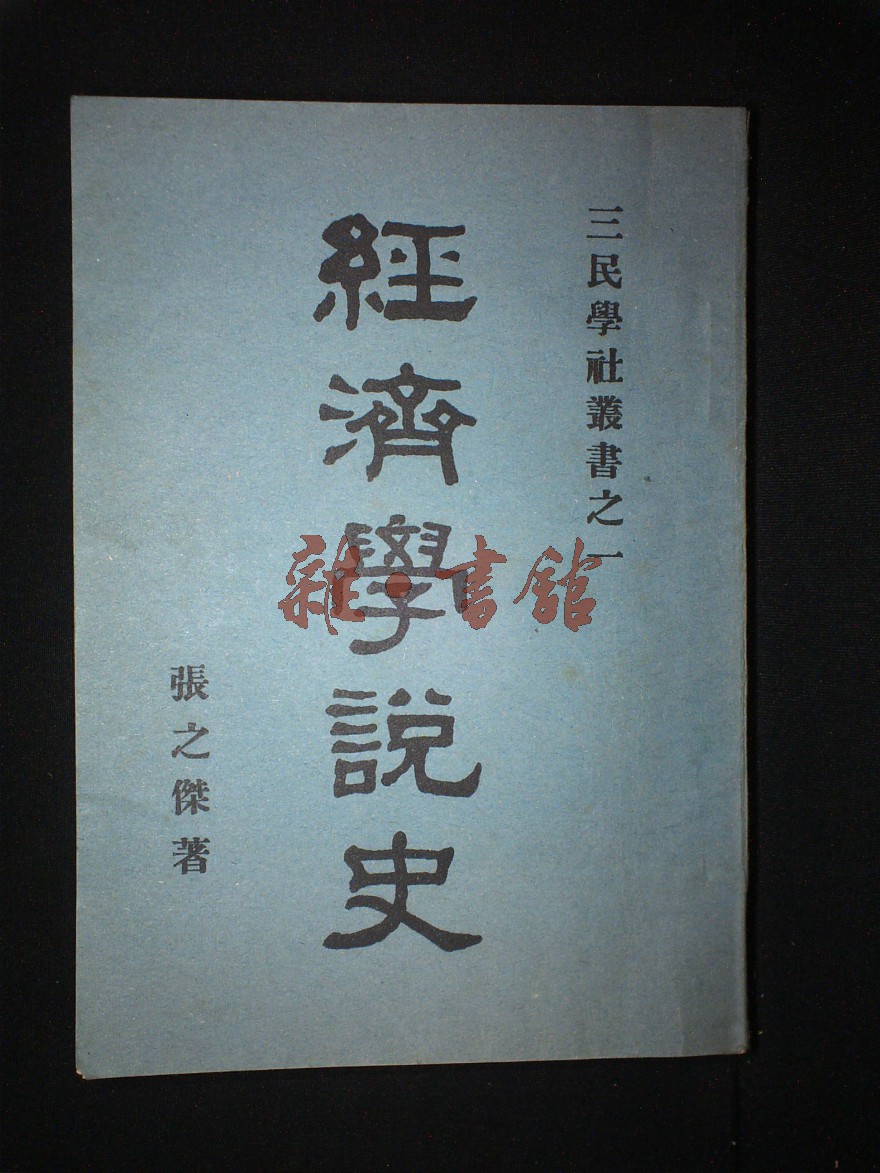 三民學社叢書之一
經濟學說史
張之傑著
雜·書館